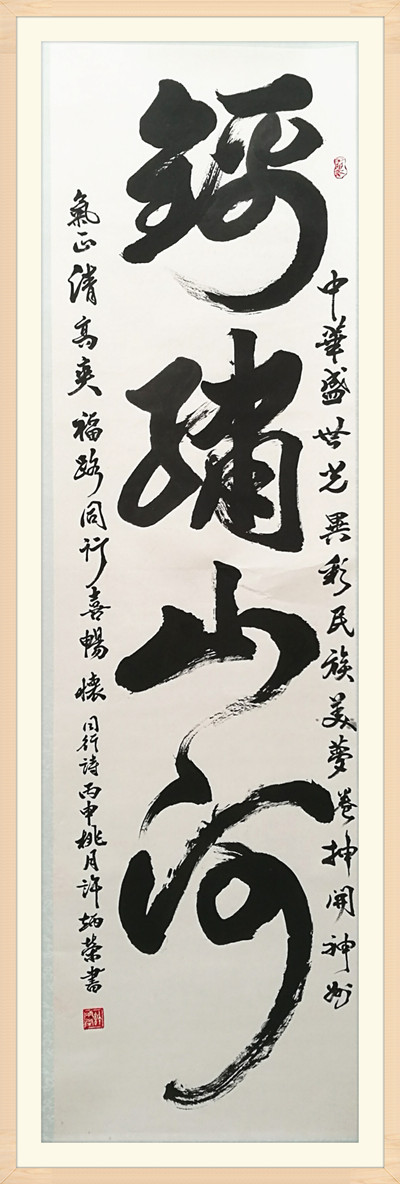 中華盛世光異彩民族美夢卷抻開神州
錦繡山河
氣正清高爽福路同行喜暢懷同行詩丙申桃月許炳榮書